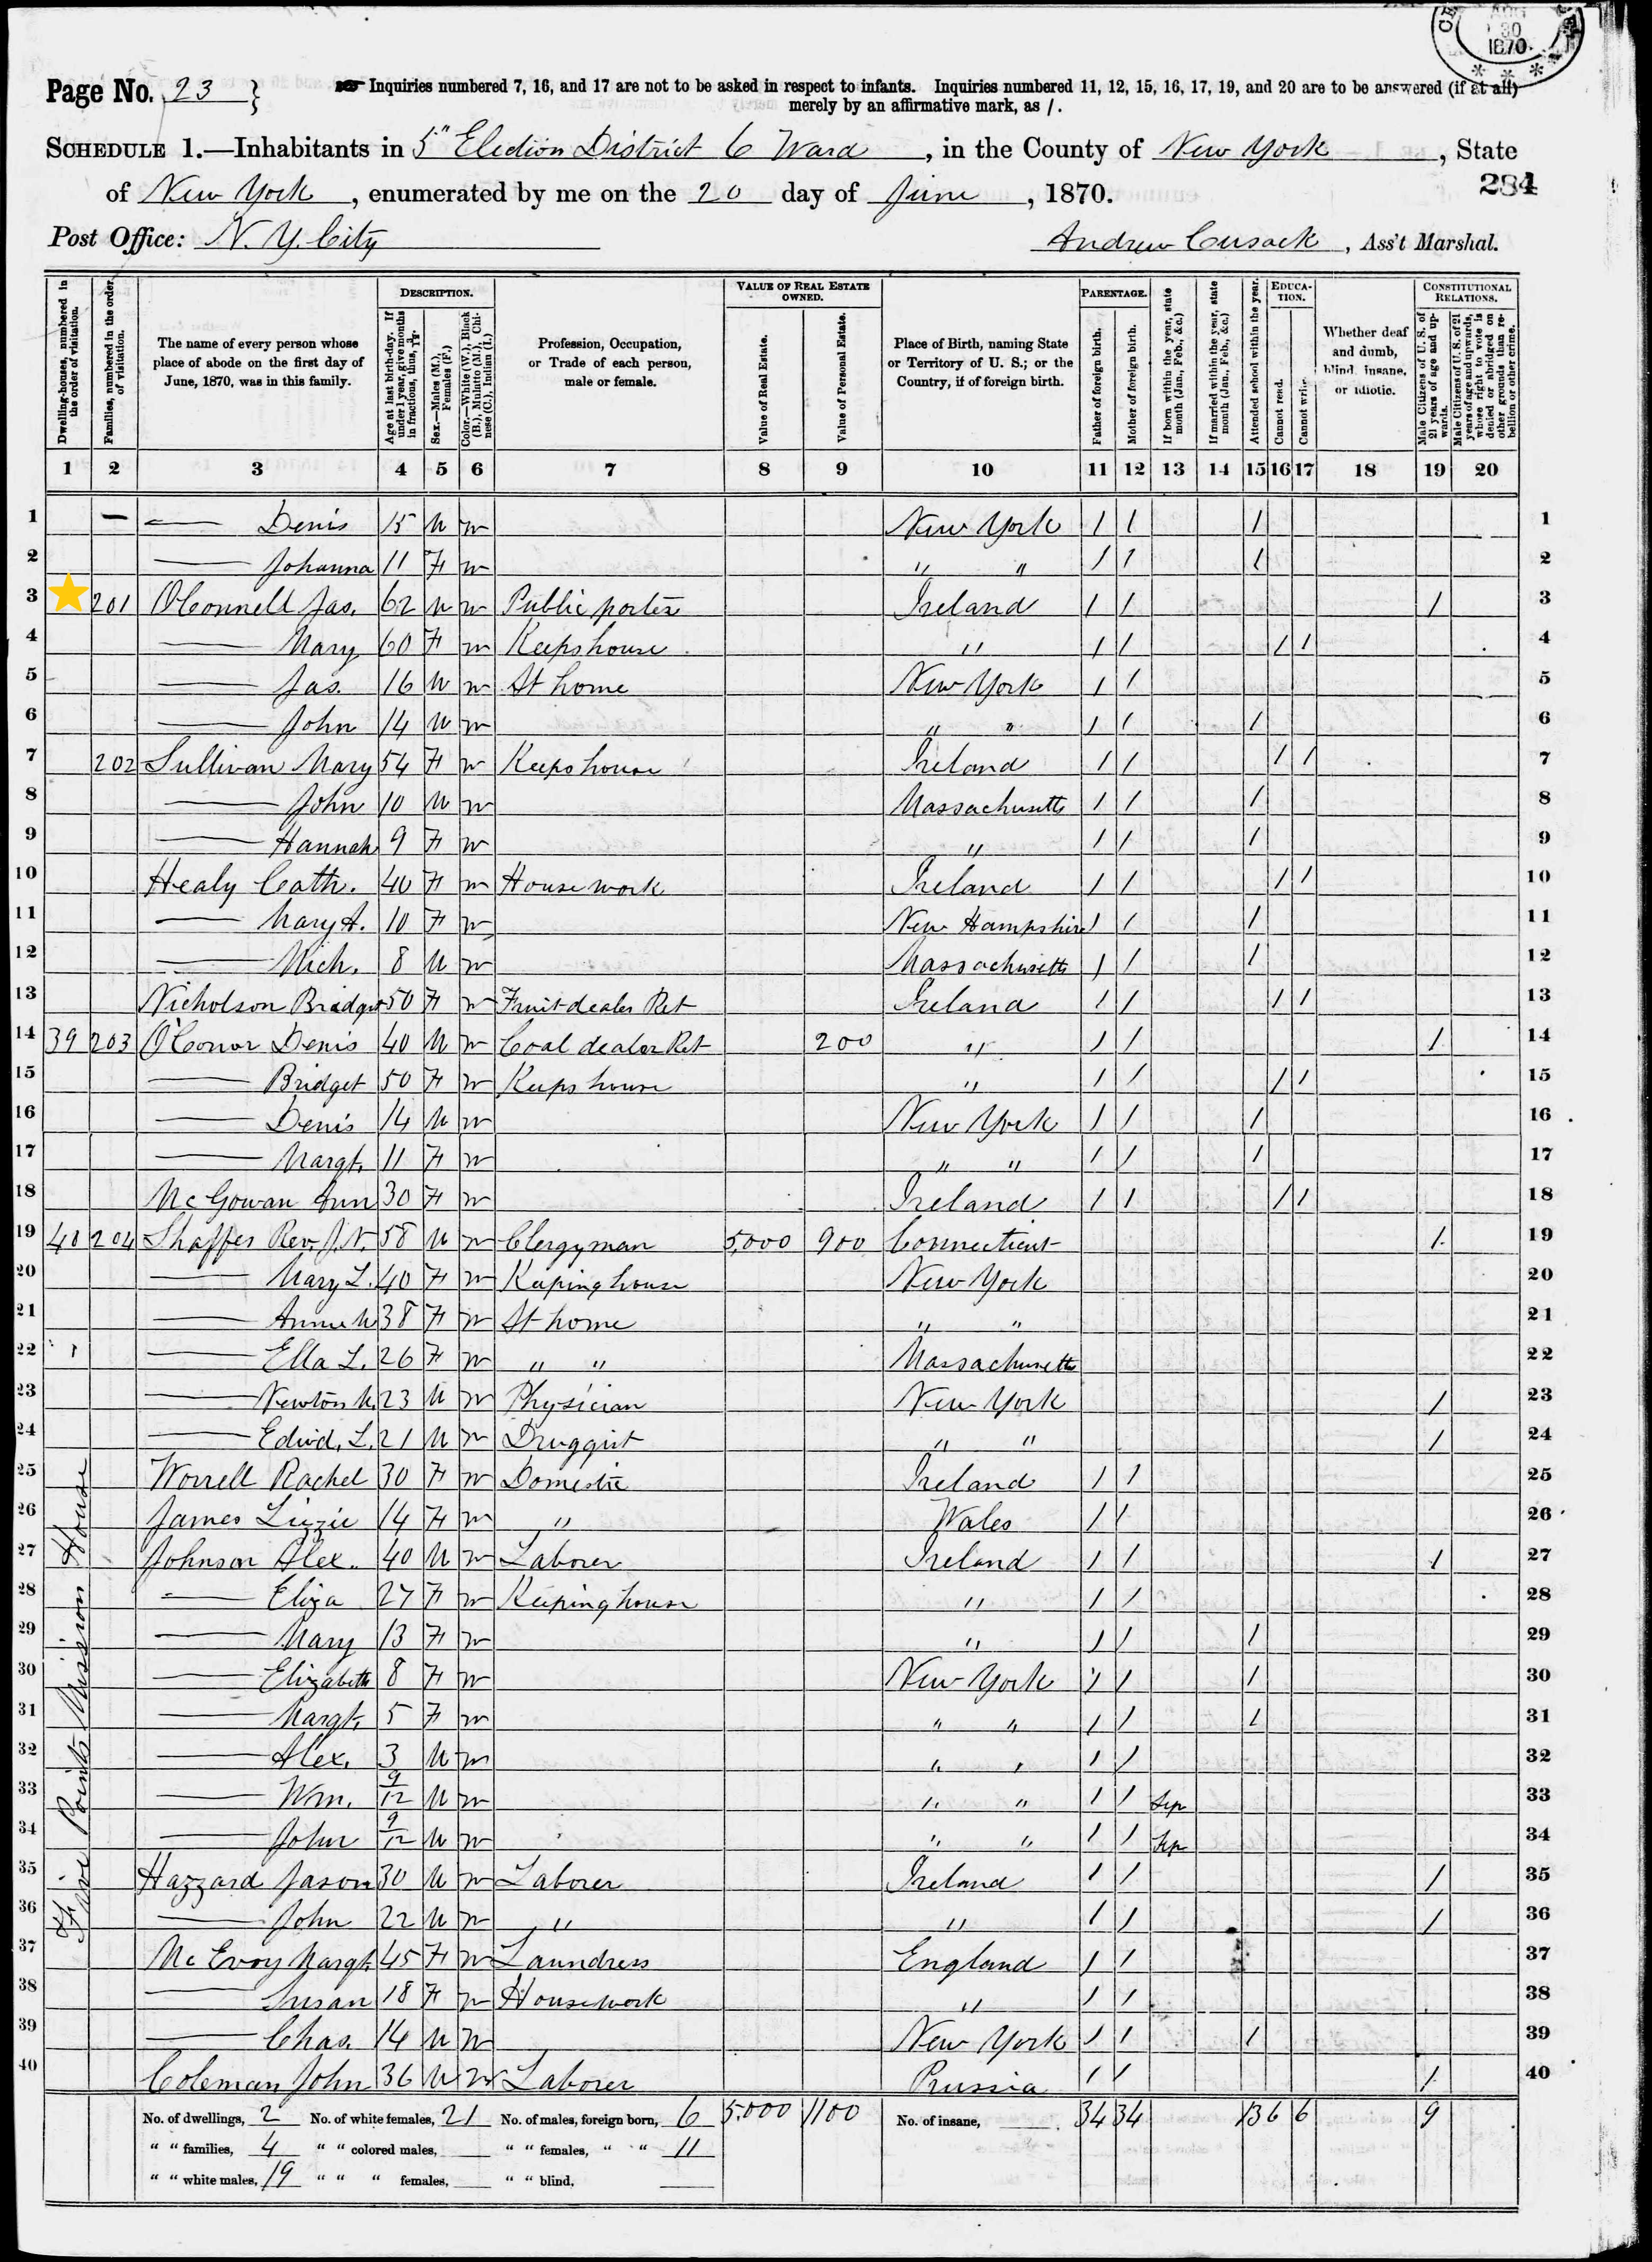 AUG
30
1870
Page No. 23 }
Inquiries numbered 7, 16, and 17 are not to be asked in respect to infants. Inquiries numbered 11, 12, 15, 16, 17, 19, and 20 are to be answered (if at all)
merely by an affirmative mark, as /.
SCHEDULE 1.—Inhabitants in 5" Election District 6 Ward, in the County of New York, State
284
of New York, enumerated by me on the 20 day of June, 1870.
Post Office: N. Y. City Andrew Cusack, Ass't Marshal.
Dwelling-houses, numbered in the order of visitation.
Families, numbered in the order of visitation.
The name of every person whose place of abode on the first day of June, 1870, was in this family.
DESCRIPTION.
Age at last birth-day. If under 1 year, give months in fractions, thus, 3/12
Sex.—Males (M.), Females (F.)
Color.—White (W.), Black (B.), Mulatto (M.), Chinese (C.), Indian (I.)
Profession, Occupation, or Trade of each person, male or female.
VALUE OF REAL ESTATE OWNED.
Value of Real Estate.
Value of Personal Estate.
Place of Birth, naming State or Territory of U. S.; or the Country, if of foreign birth.
PARENTAGE.
Father of foreign birth.
Mother of foreign birth.
If born within the year, state month (Jan., Feb., &c.)
If married within the year, state month (Jan., Feb., &c.)
Attended school within the year.
EDUCATION.
Cannot read.
Cannot write.
Whether deaf and dumb, blind, insane, or idiotic.
CONSTITUTIONAL RELATIONS.
Male Citizens of U. S. of 21 years of age and upwards.
Male Citizens of U. S. of 21 years of age and upwards, whose right to vote is denied or abridged on other grounds than rebellion or other crime.
1 2 3 4 5 6 7 8 9 10 11 12 13 14 15 16 17 18 19 20
1 — —— Denis 15 M W New York / / / 1
2 —— Johanna 11 F W " " / / / 2
3 201 O'Connell Jas. 62 M W Public porter Ireland / / / 3
4 —— Mary 60 F W Keeps house " / / / / 4
5 —— Jas. 16 M W At home New York / / 5
6 —— John 14 M W " " / / / 6
7 202 Sullivan Mary 54 F W Keeps house Ireland / / / / 7
8 —— John 10 M W Massachusetts / / / 8
9 —— Hannah 9 F W " / / / 9
10 Healy Cath. 40 F W House work Ireland / / / / 10
11 —— Mary A. 10 F W New Hampshire / / / 11
12 —— Mich. 8 M W Massachusetts / / / 12
13 Nicholson Bridget 50 F W Fruit dealer Ret Ireland / / / / 13
14 39 203 O'Conor Denis 40 M W Coal dealer Ret 200 " / / / 14
15 —— Bridget 50 F W Keeps house " / / / / 15
16 —— Denis 14 M W New York / / / 16
17 —— Margt. 11 F W " " / / / 17
18 McGowan Ann 30 F W Ireland / / / / 18
19 40 204 Shaffer Rev. J. N. 58 M W Clergyman 5,000 900 Connecticut / 19
20 —— Mary L. 40 F W Keeping house New York 20
21 —— Annie M 38 F W At home " " 21
22 —— Ella L. 26 F W " " Massachusetts 22
23 —— Newton M. 23 M W Physician New York / 23
24 —— Edwd. L. 21 M W Druggist " " / 24
25 Worrell Rachel 30 F W Domestic Ireland / / 25
26 James Lizzie 14 F W " Wales / / 26
27 Johnson Alex. 40 M W Laborer Ireland / / / 27
28 —— Eliza 27 F W Keeping house " / / 28
29 —— Mary 13 F W " / / / 29
30 —— Elizabeth 8 F W New York / / / 30
31 —— Margt. 5 F W " " / / / 31
32 —— Alex. 3 M W " " / / 32
33 —— Wm. 9/12 M W " " / / Sep 33
34 —— John 9/12 M W " " / / Sep 34
35 Hazzard Jason 30 M W Laborer Ireland / / / 35
36 —— John 22 M W " " / / / 36
37 McEvoy Margt. 45 F W Laundress England / / 37
38 —— Susan 18 F W Housework " / / 38
39 —— Chas. 14 M W New York / / / 39
40 Coleman John 36 M W Laborer Prussia / / / 40
Five Points Mission House
No. of dwellings, 2 No. of white females, 21 No. of males, foreign born, 6 5,000 1100 No. of insane, 34 34 13 6 6 9
" " families, 4 " " colored males, " " females, " " 11
" " white males, 19 " " " females, " " blind,